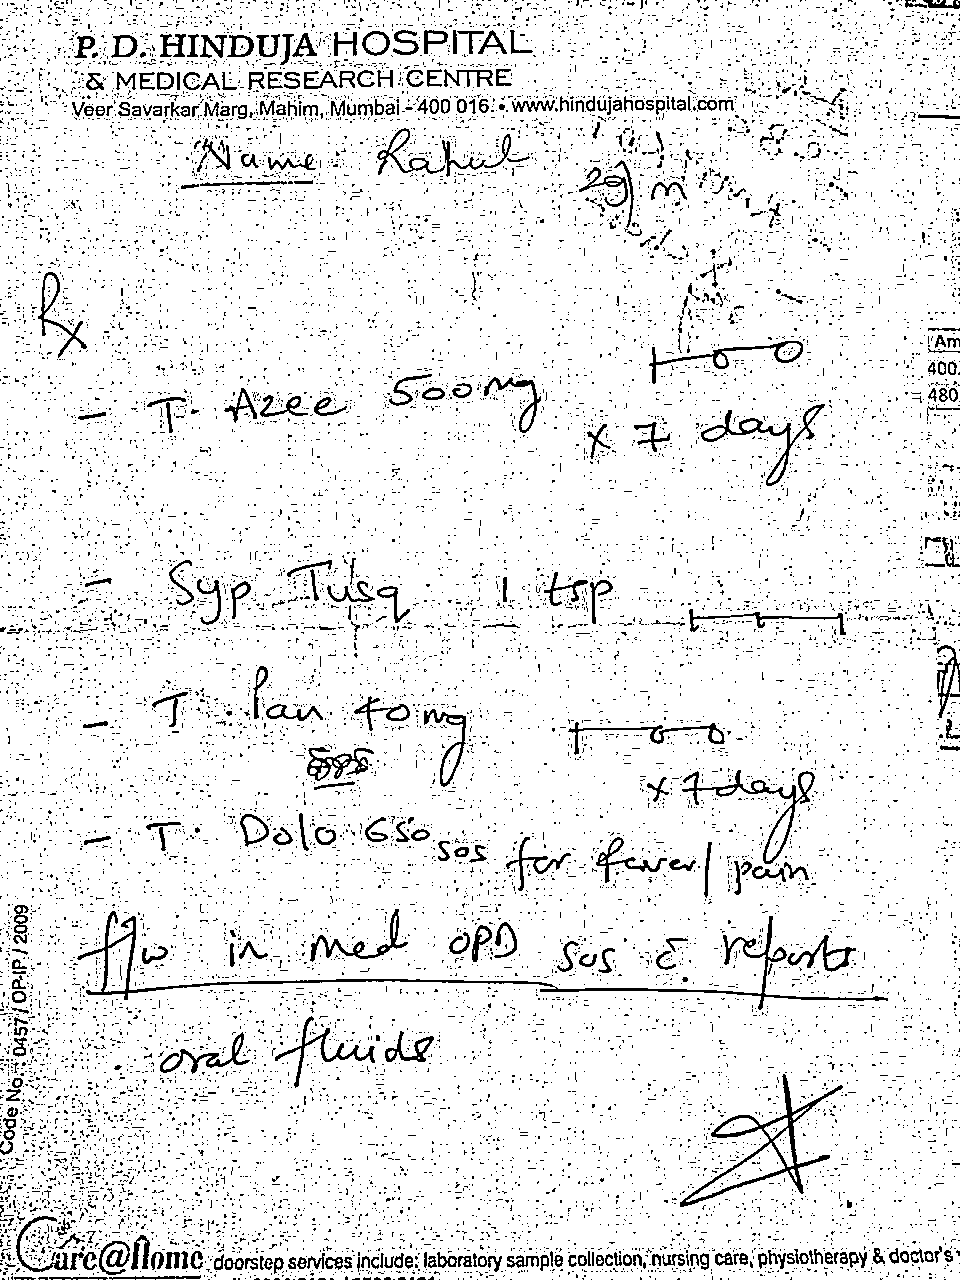 P. D. HINDUJA HOSPITAL
& MEDICAL RESEARCH CENTRE
Veer Savarkar Marg, Mahim, Mumbai - 400 016. • www.hindujahospital.com
Name: Rahul 29/m
Rx
- T. Azee 500mg
x 7 days
- Syp Tusq 1 tsp
- T. Pan 40 mg
x 7 days
- T. Dolo 650 sos for fever/pain
f/w in med OPD sos c̄ reports
. oral fluids
Code No. 0457 / OP-IP / 2009
Am
400.
480
Care@Home doorstep services include: laboratory sample collection, nursing care, physiotherapy & doctor's